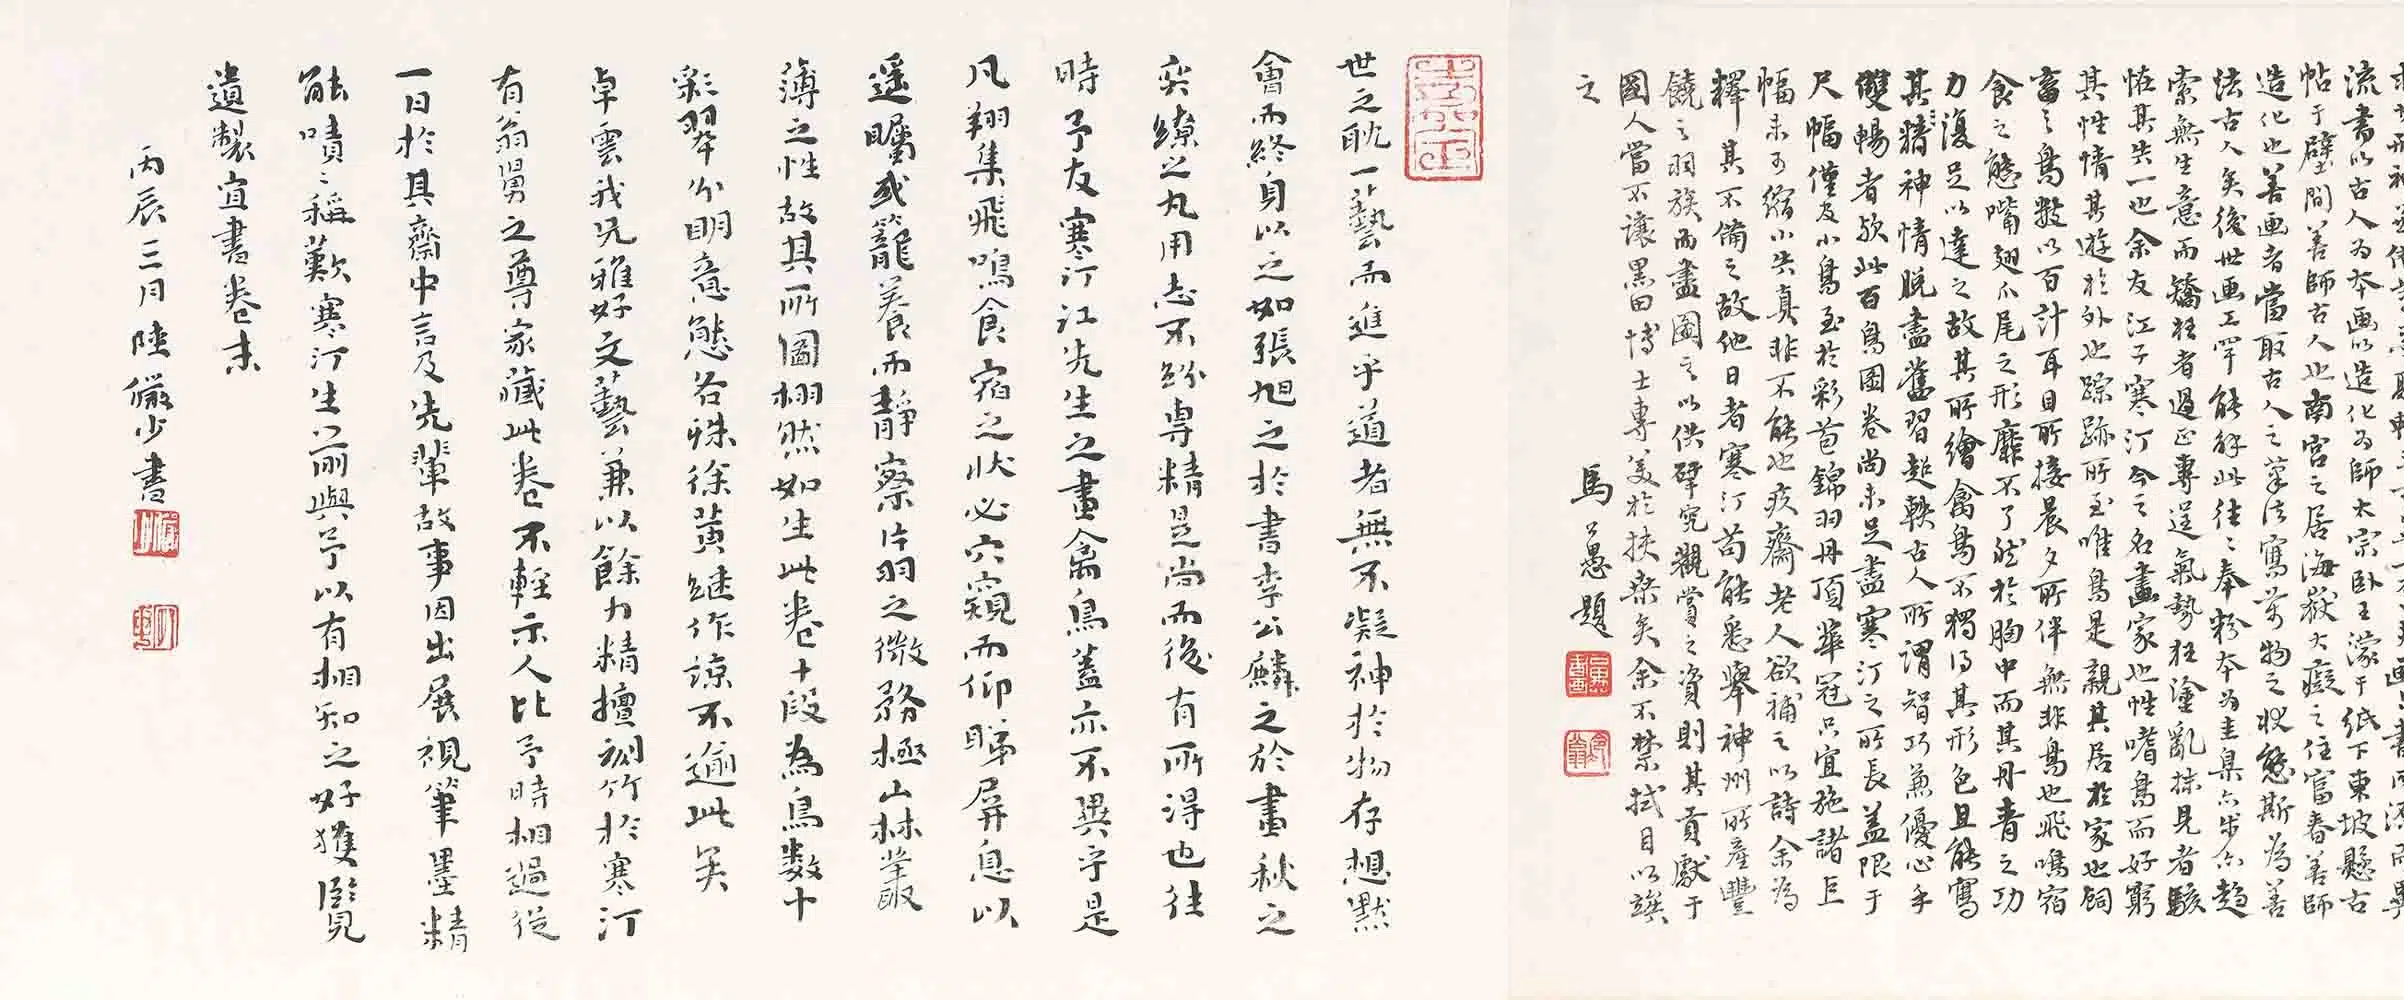 流書以古人為本画以造化為師太宗卧王濛于紙下東坡懸古
帖于壁間善師古人也南宮之居海嶽大癡之住富春善師
造化也善画者當取古人之筆法寫萬物之狀態斯為善
法古人矣後世画工罕能解此往々奉粉本為圭臬亦步亦趨
索無生意而矯枉者過正專逞氣勢狂塗亂抹見者駭
怪其失一也余友江子寒汀今之名畫家也性嗜鳥而好窮
其性情其遊於外也踪跡所至唯鳥是親其居於家也飼
畜之鳥數以百計耳目所接晨夕所伴無非鳥也飛鳴宿
食之態嘴翅爪尾之形靡不了然於胸中而其丹青之功
力復足以達之故其所繪禽鳥不獨得其形色且能寫
其精神情脫盡舊習超軼古人所謂智巧兼優心手
雙暢者歟此百鳥圖卷尚未足盡寒汀之所長蓋限于
尺幅僅及小鳥至於彩苞錦羽丹頂華冠只宜施諸巨
幅未可縮小失真非不能也疚齋老人欲補之以詩余為
釋其不備之故他日者寒汀苟能悉舉神州所產豐
饒之羽族而盡圖之以供研究觀賞之資則其貢獻于
國人當不讓黑田博士專美於扶桑矣余不禁拭目以竢
之
馬公愚題
世之耽一藝而進乎道者無不凝神於物存想默
會而終身以之如張旭之於書李公麟之於畫秋之
奕繚之丸用志不紛專精是尚而後有所得也往
時予友寒汀江先生之畫禽鳥蓋亦不異乎是
凡翔集飛鳴食宿之狀必穴窺而仰睇屏息以
遥矚或籠養而靜察片羽之微務極山林叢薮
薄之性故其所圖栩然如生此卷十段為鳥数十
彩翠分明意態各殊徐黄繼作諒不逾此矣
卓雲我兄雅好文藝兼以餘力精擅刻竹於寒汀
有翁舅之尊家藏此卷不輕示人比予時相過從
一日於其齋中言及先輩故事因出展視筆墨精
能嘖々稱歎寒汀生前與予以有相知之好獲覽
遺製宜書卷末
丙辰三月陸儼少書